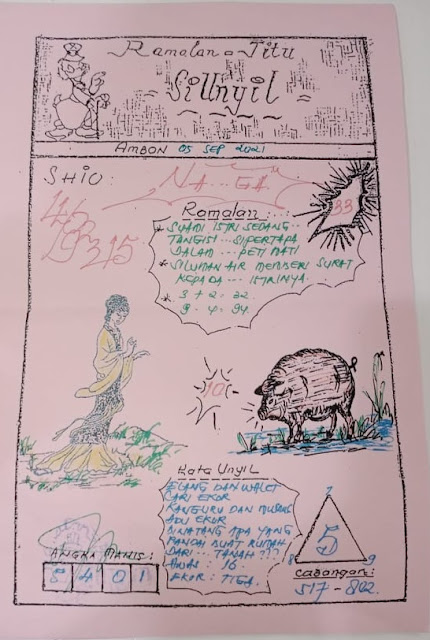 Ramalan = Jitu
= SiUnyil =
AMBON 05 SEP 2021
SHIO:
NA...GA
33
Ramalan:
* SUAMI ISTRI SEDANG..
TANGISI... SIPERTAPA
DALAM... PETI MATI
* SILUMAN AIR MEMBERI SURAT
KEPADA... ISTRINYA.
* 3 + 2 = 32.
9 - 4 = 94.
10
Kata UNYIL
ELANG DAN WALET
CARI EKOR
KANGURU DAN MUSANG
ADU EKOR
BINATANG APA YANG
PANDAI BUAT RUMAH
DARI... TANAH???
AWAS: 16
EKOR: TIGA.
ANGKA MANIS:
5 4 0 1
7
5
8 9
Cabangan:
517 - 802.